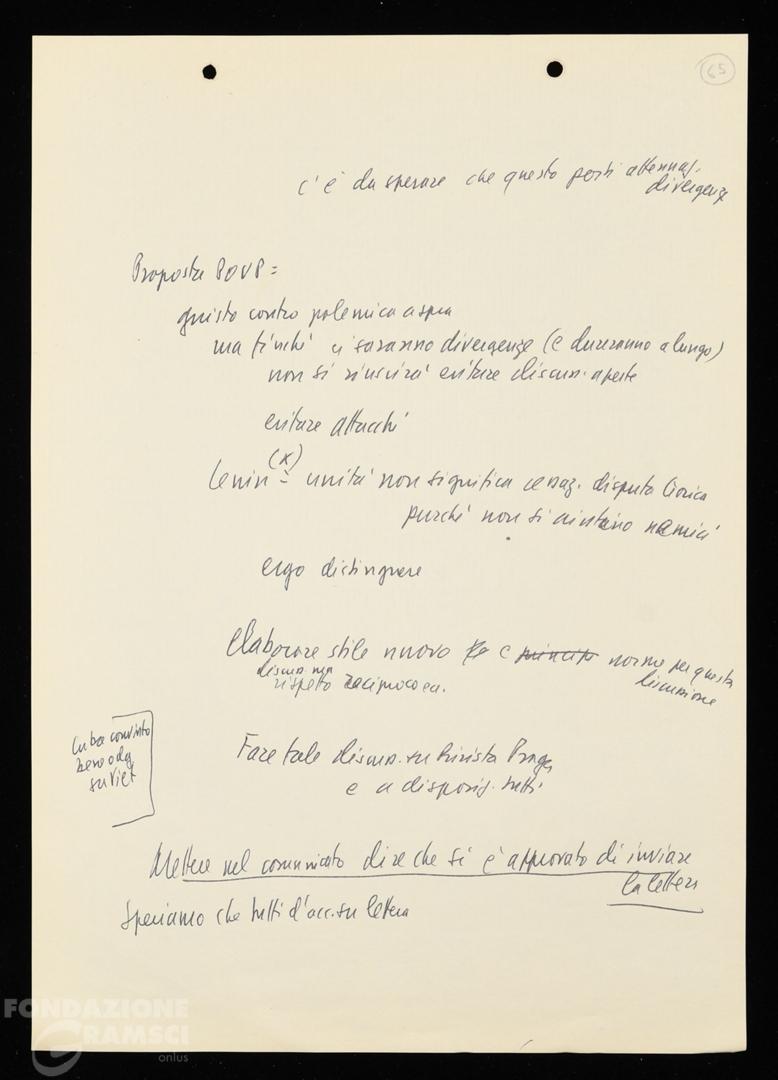 65
c'è da sperare che questo porti attenuaz.
divergenze
Proposta POUP =
giusto contro polemica aspra
ma finché ci saranno divergenze (e dureranno a lungo)
non si riuscirà evitare discuss. aperte
evitare attacchi
(x)
Lenin = unità non significa cessaz. disputa teorica
purché non si aiutino nemici
ergo distinguere
elaborare stile nuovo e princip norme per questa
discussione
discuss. ma
rispetto reciproco ecc.
Cuba convinto
su Viet
Fare tale discuss. su Rivista Praga
e a disposiz. tutti
Mettere nel comunicato dire che si è approvato di inviare
la lettera
Speriamo che tutti d'acc. su lettera
FONDAZIONE
GRAMSCI
onlus